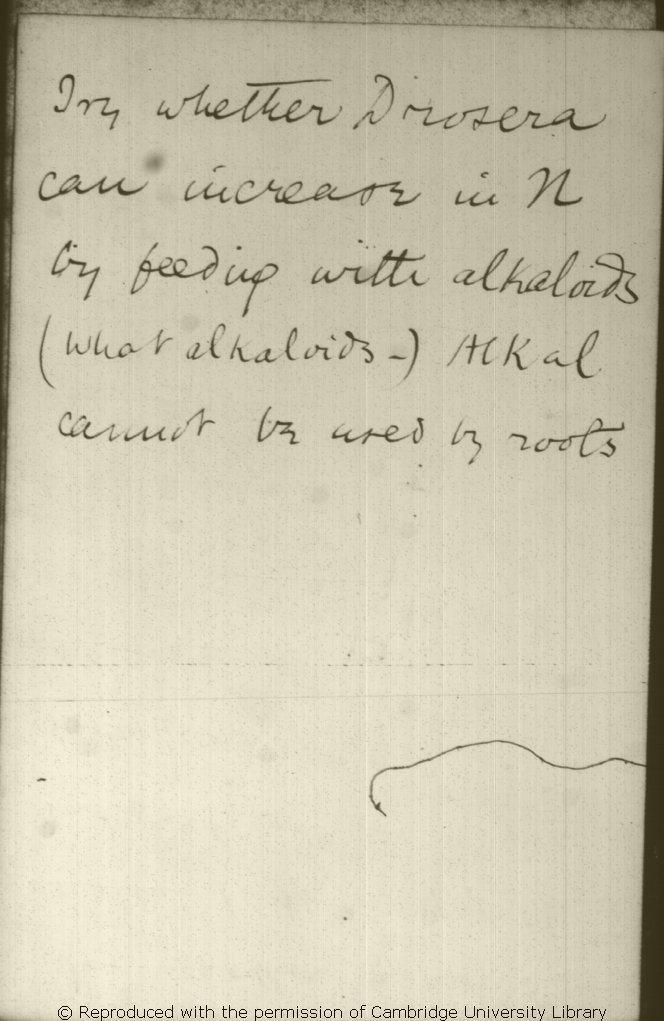 Try whether Drosera
can increase in N
by feeding with alkaloids
(what alkaloids –) Alkal
cannot be used by roots
© Reproduced with the permission of Cambridge University Library